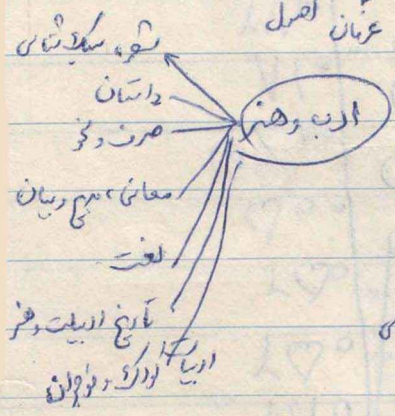 عرفان اصول
شعر، سبک شناسی
داستان
ادب و هنر
صرف و نحو
معانی، بدیع و بیان
لغت
تاریخ ادبیات و هنر
ادبیات کودک و نوجوان